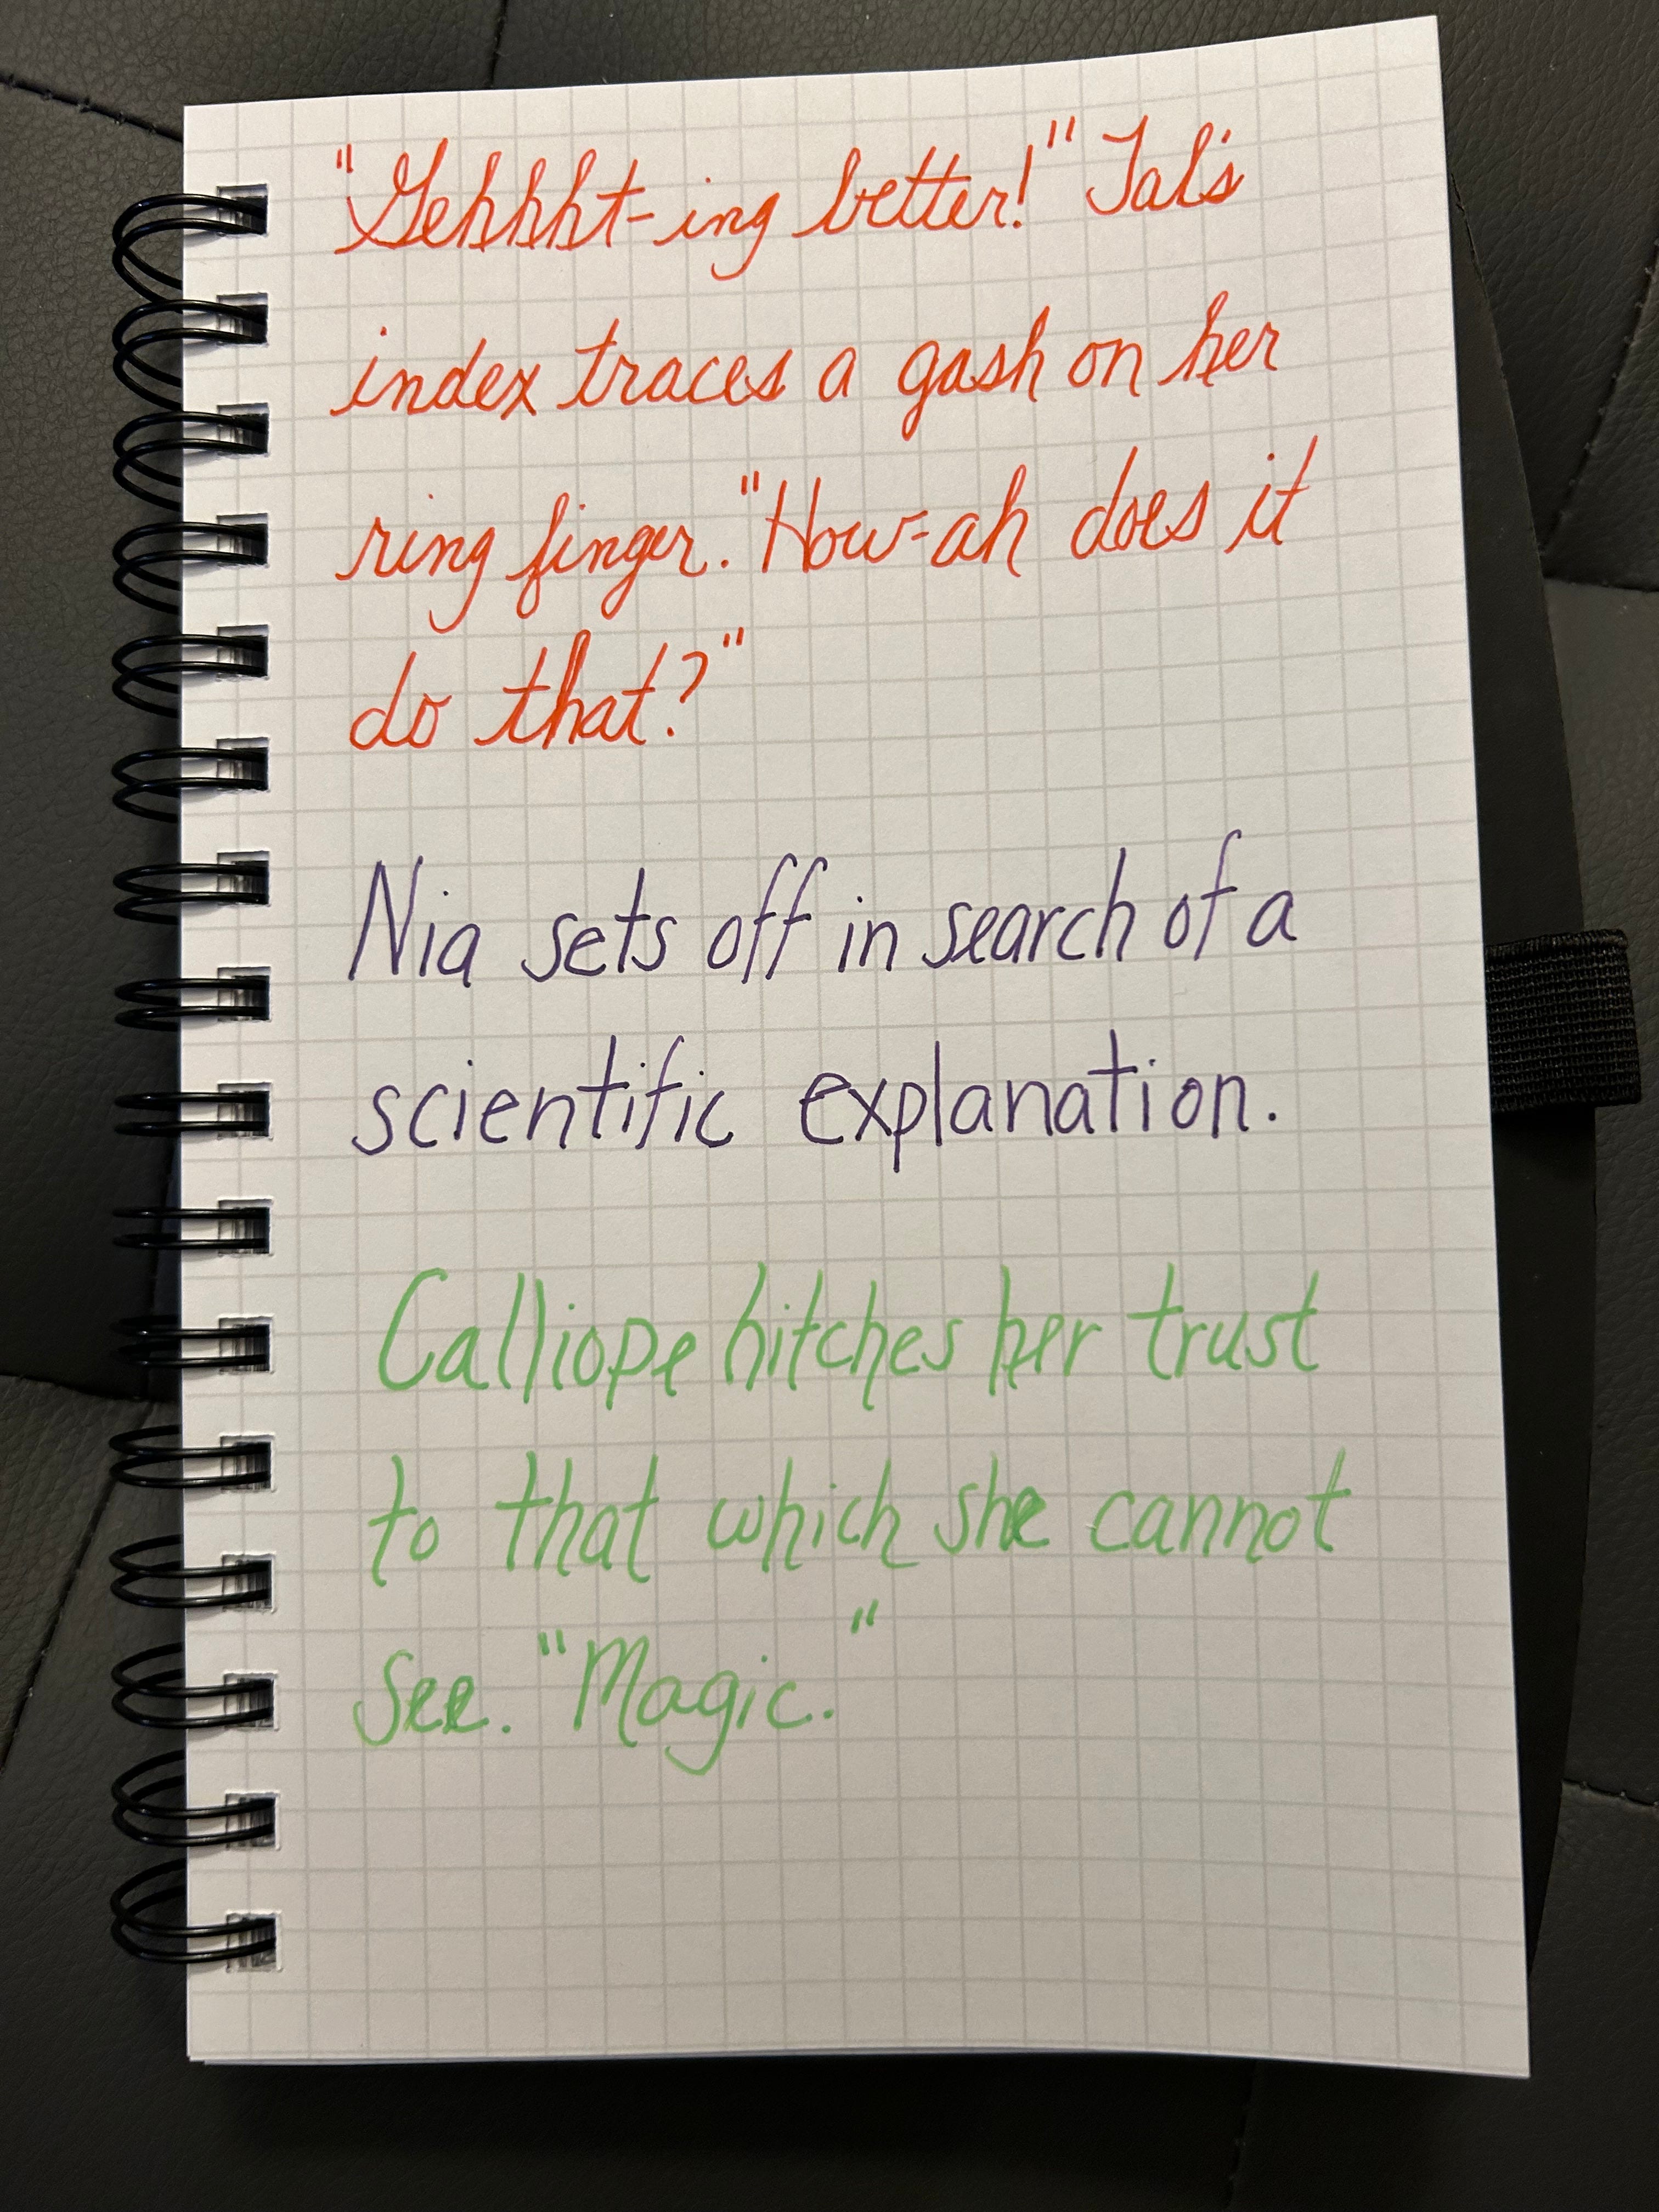 "Gehhht-ing better!" Tal's
index traces a gash on her
ring finger. "How-ah does it
do that?"
Nia sets off in search of a
scientific explanation.
Calliope hitches her trust
to that which she cannot
see. "Magic."